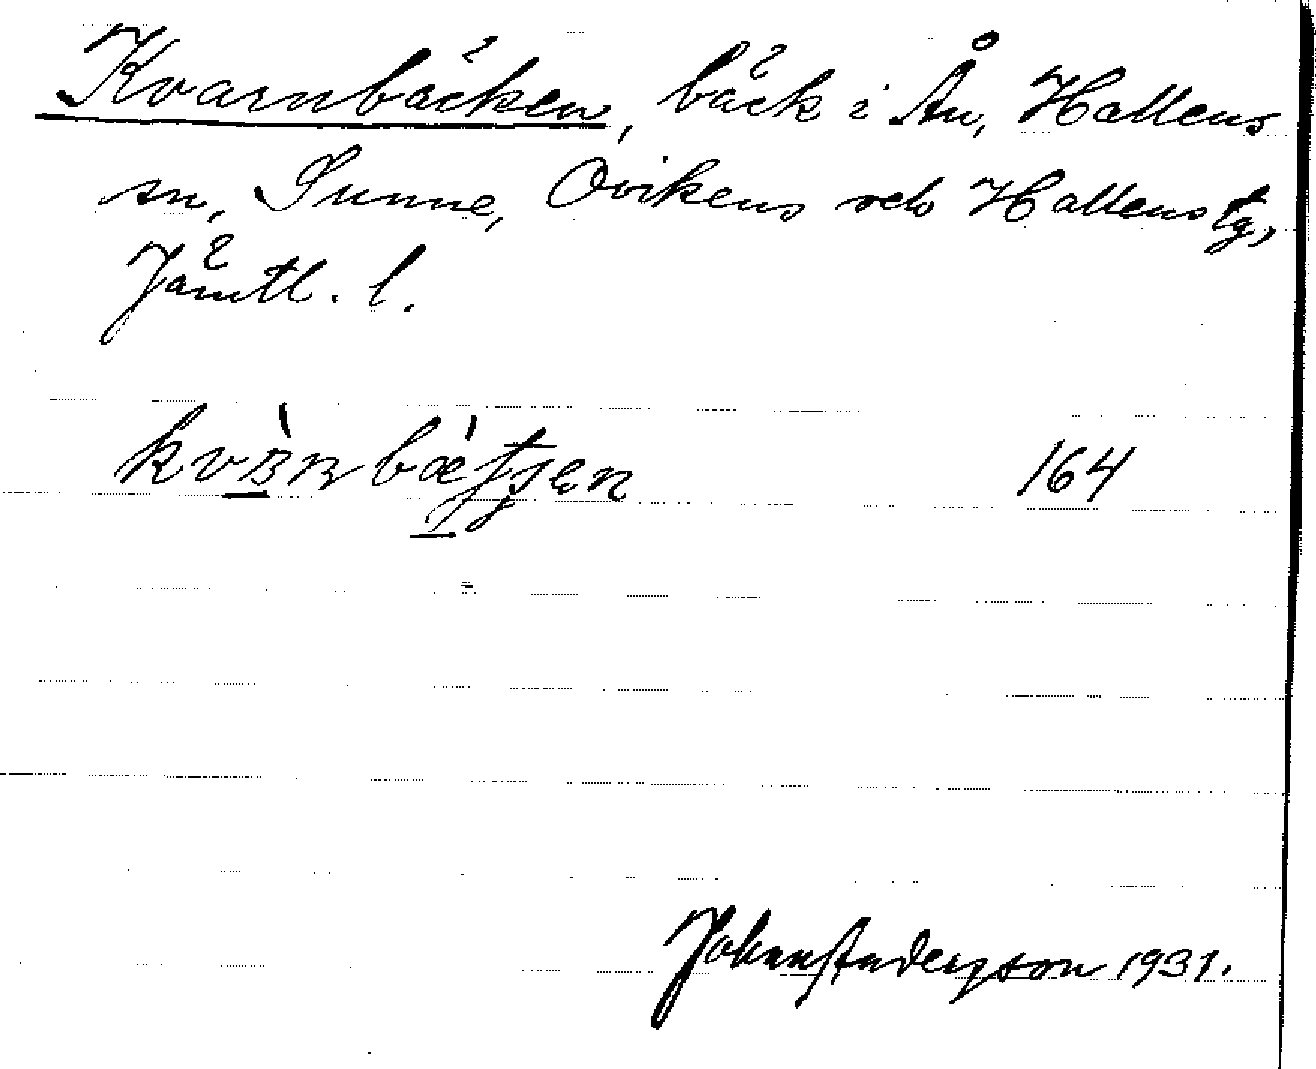 Kvarnbäcken, bäck i Ån, Hallens
sn, Sunne, Ovikens och Hallens tg,
Jämtl. l.
164
Johan Anderzson 1931.